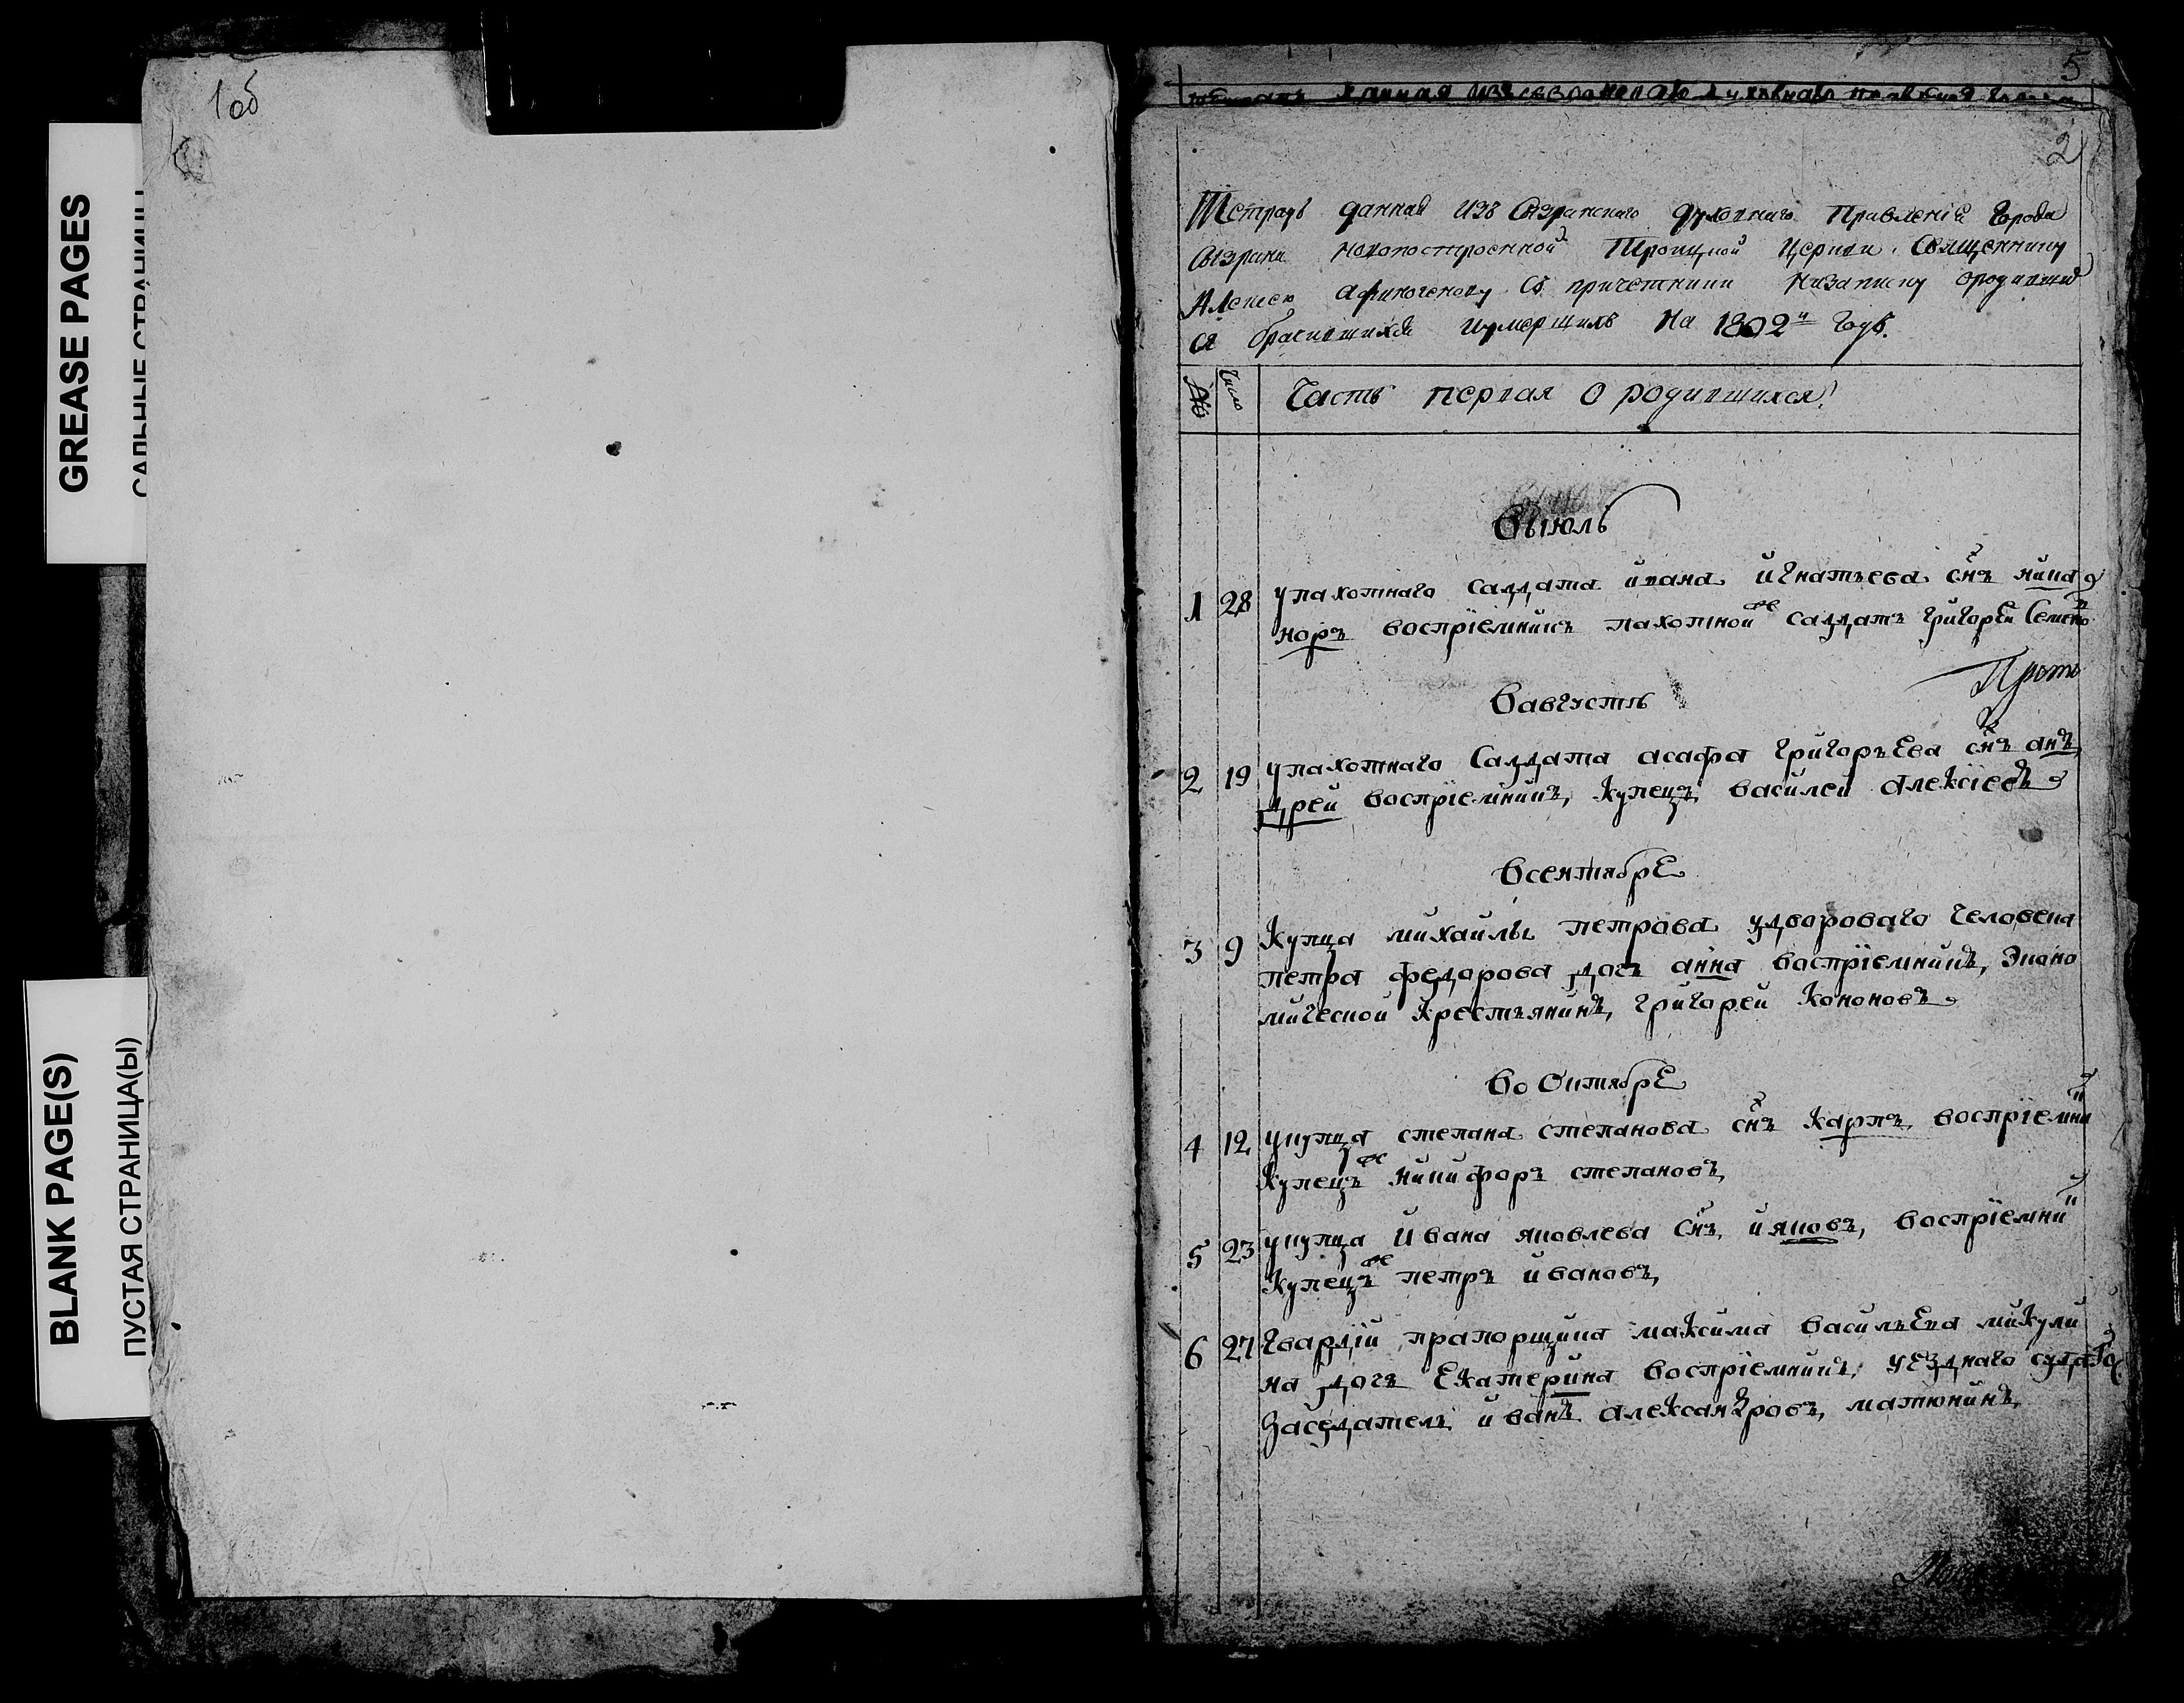 GREASE PAGES
САЛЬНЫЕ СТРАНИЦЫ
BLANK PAGE(S)
ПУСТАЯ СТРАНИЦА(Ы)
1об
5
данная изъ сызранскаго духовнаго правления города
2
Тетрадь данная изъ Сызранскаго Духовнаго Правления города
Сызрани новопостроенной Троицкой церкви Священнику
Алексею Афиногенову съ причетники на записку о родивши
ся брачившихся и умерщихъ на 1802й годъ.
№ Число Часть первая о родившихся
Въ июль
1 28 упахотнаго салдата ивана игнатьева снъ ника
норъ воспріемникъ пахотной салдатъ григорей Семено
в августъ
2 19 упахотнаго Салдата асафа григорьева снъ анъ
дрей воспріемникъ, купецъ василей алексіевъ
в сентябре
3 9 Купца михайлы петрова удвороваго человека
петра федорова дочь анна воспріемникъ, экано
мической крестьянинъ, григорей Кононовъ
во октябре
4 12 укупца степана степанова снъ карпъ воспріемни
купецъ никифоръ степановъ,
5 23 укупца ивана яковлева снъ, ияковъ, воспріемни
купецъ петръ ивановъ,
6 27 Гвардіи прапорщика максима васильева микули
на дочь Екатерина воспріемникъ, уезднаго суда
Заседатель иванъ александровъ, матюнинъ,